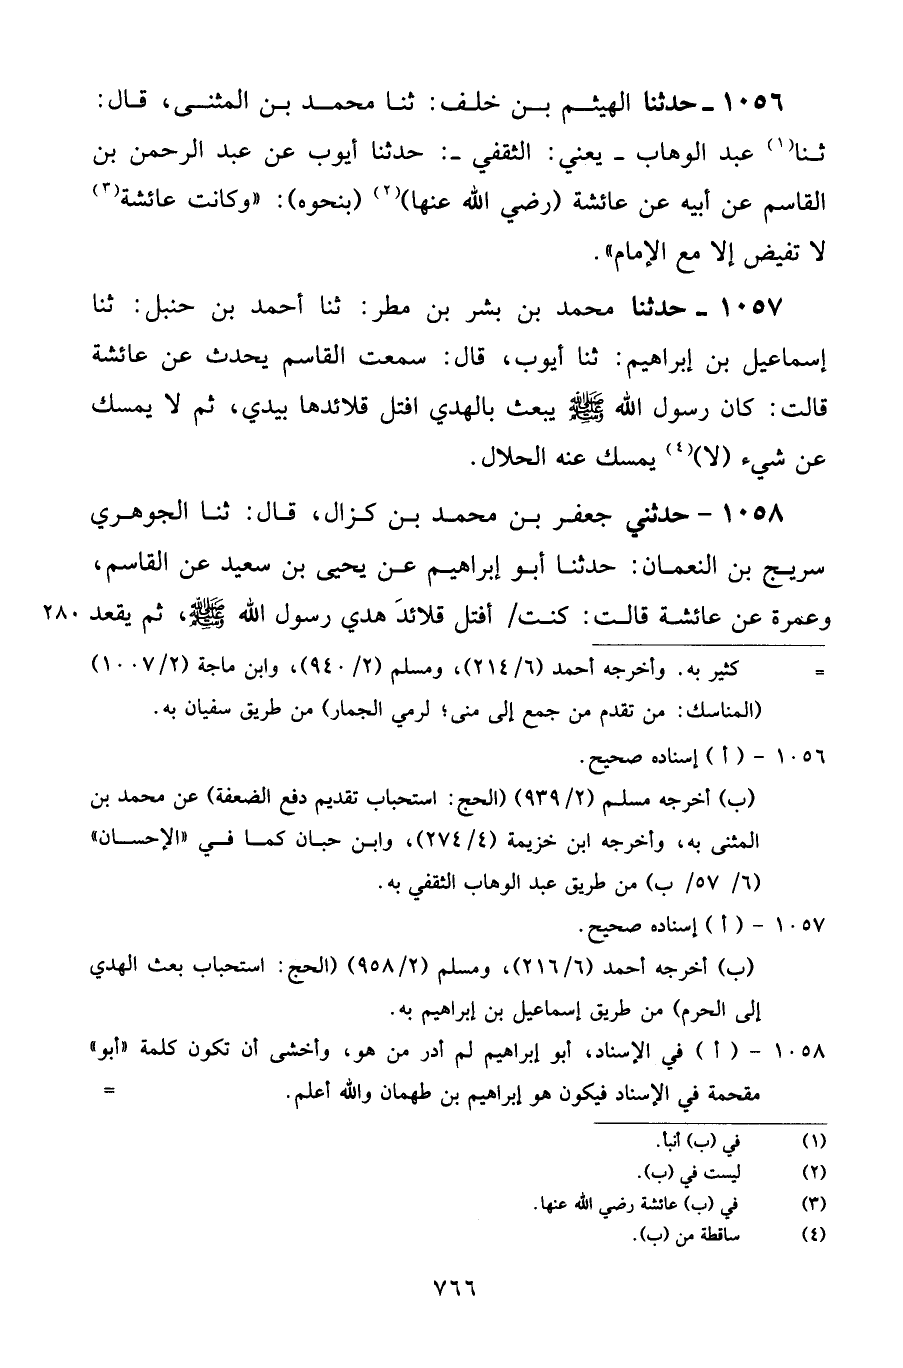 ١٠٥٦ ـ حدثنا الهيثم بن خلف: ثنا محمد بن المثنى، قال:
ثنا(١) عبد الوهاب ـ يعني: الثقفي ـ: حدثنا أيوب عن عبد الرحمن بن
القاسم عن أبيه عن عائشة (رضي الله عنها)(٢) (بنحوه): «وكانت عائشة(٣)
لا تفيض إلا مع الإمام».
١٠٥٧ ـ حدثنا محمد بن بشر بن مطر: ثنا أحمد بن حنبل: ثنا
إسماعيل بن إبراهيم: ثنا أيوب، قال: سمعت القاسم يحدث عن عائشة
قالت: كان رسول الله ﷺ يبعث بالهدي افتل قلائدها بيدي، ثم لا يمسك
عن شيء (لا)(٤) يمسك عنه الحلال.
١٠٥٨ - حدثني جعفر بن محمد بن كزال، قال: ثنا الجوهري
سريج بن النعمان: حدثنا أبو إبراهيم عن يحيى بن سعيد عن القاسم،
وعمرة عن عائشة قالت: كنت/ أفتل قلائدَ هدي رسول الله ﷺ، ثم يقعد ٢٨٠
= كثير به. وأخرجه أحمد (٢١٤/٦)، ومسلم (٩٤٠/٢)، وابن ماجة (١٠٠٧/٢)
(المناسك: من تقدم من جمع إلى منى؛ لرمي الجمار) من طريق سفيان به.
١٠٥٦ - ( أ ) إسناده صحيح.
(ب) أخرجه مسلم (٩٣٩/٢) (الحج: استحباب تقديم دفع الضعفة) عن محمد بن
المثنى به، وأخرجه ابن خزيمة (٢٧٤/٤)، وابن حبان كما في «الإحسان»
(٦/ ٥٧/ ب) من طريق عبد الوهاب الثقفي به.
١٠٥٧ - ( أ ) إسناده صحيح.
(ب) أخرجه أحمد (٢١٦/٦)، ومسلم (٩٥٨/٢) (الحج: استحباب بعث الهدي
إلى الحرم) من طريق إسماعيل بن إبراهيم به.
١٠٥٨ - ( أ ) في الإسناد، أبو إبراهيم لم أدر من هو، وأخشى أن تكون كلمة «أبو»
مقحمة في الإسناد فيكون هو إبراهيم بن طهمان والله أعلم. =
(١) في (ب) أنبأ.
(٢) ليست في (ب).
(٣) في (ب) عائشة رضي الله عنها.
(٤) ساقطة من (ب).
٧٦٦